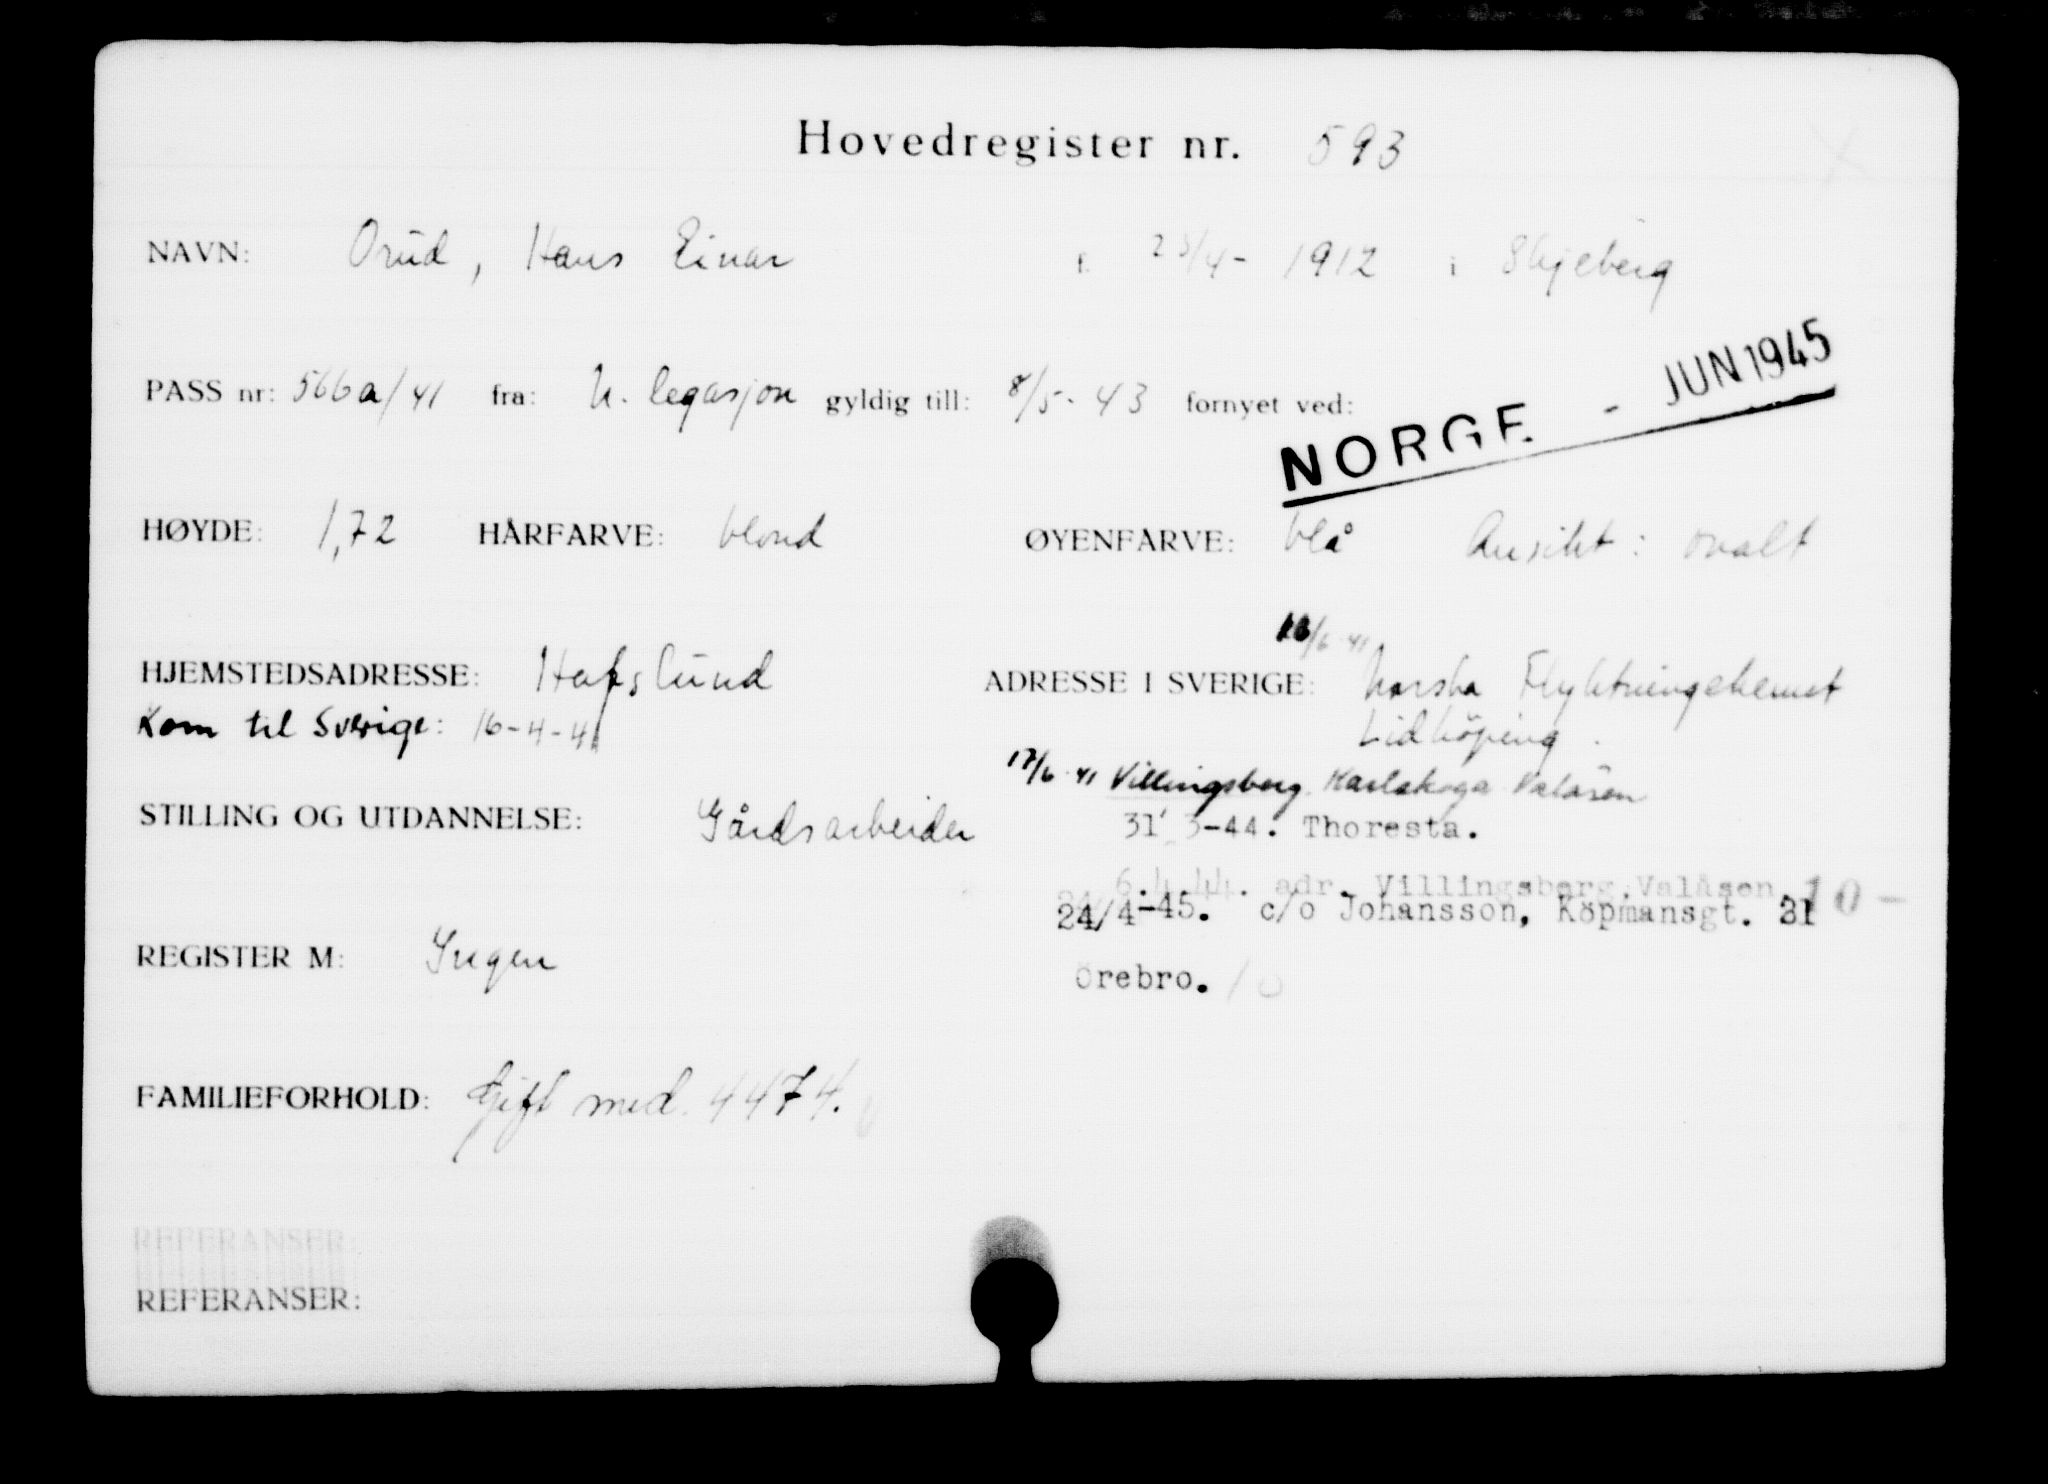 Hovedregister nr. 593
NAVN: Orud, Hans Einar f. 25/4-1912 i Skjeberg
PASS nr: 566a/41 fra: N. legasjon gyldig till: 8/5-43 fornyet ved:
NORGE - JUN 1945
HØYDE: 1,72 HÅRFARVE: blond ØYENFARVE: blå Ansikt: ovalt
HJEMSTEDSADRESSE: Hafslund ADRESSE I SVERIGE: /6-41 Norska Flyktningehemmet
Kom til Sverige: 16-4-41 Lidköping.
17/6-41 Villingsberg. Karlskoga Valåsen
STILLING OG UTDANNELSE: Gårdsarbeider 31/3-44. Thoresta.
6.4.44. adr. Villingsberg, Valåsen. 10-
24/4-45. c/o Johansson, Köpmansgt. 31
REGISTER M: Ingen Örebro. 10
FAMILIEFORHOLD: Gift med 4474.
REFERANSER:
REFERANSER: